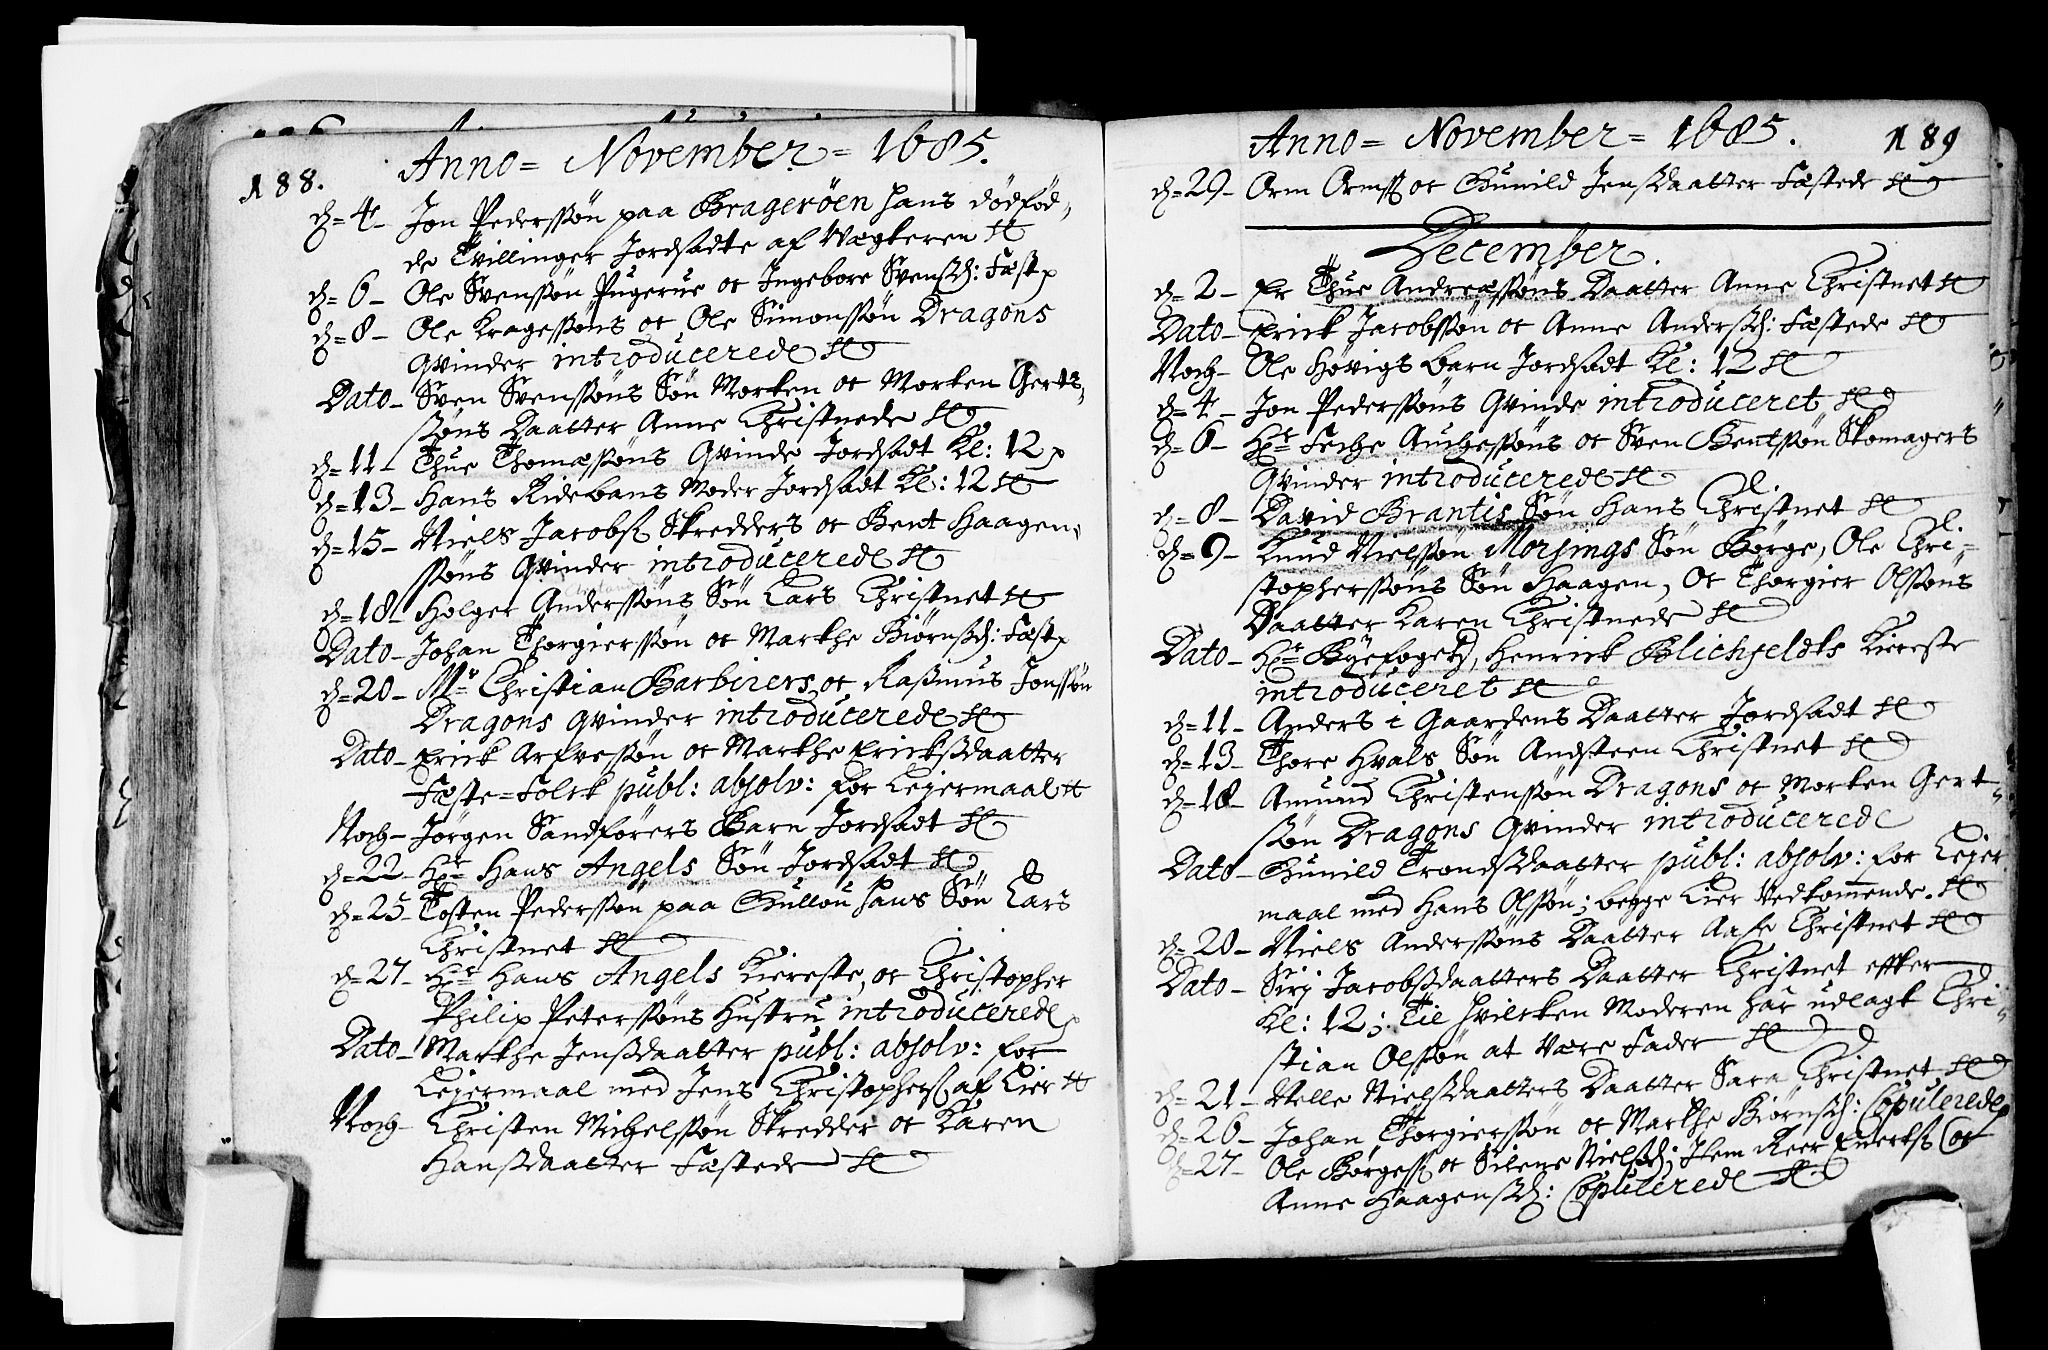 188. Anno = November = 1685.
d = 4 - Jon Pederssøn paa Bragerøen hans dødfød,,
de Tvillinger Jordsadte af Vægteren
d = 6 - Ole Svenssøn Pugerue oc Ingebore Svensd: Fæst
d = 8 - Ole Kragessøns oc Ole Simonssøn Dragons
Qvinder introducerede
Dato - Sven Svenssøns Søn Morten oc Morten Gerts,,
søns Daatter Anne Christnede
d = 11 - Thue Thomæssøns Qvinde Jordsadt Kl: 12
d = 13 - Hans Ridebans Moder Jordsadt Kl: 12
d = 15 - Niels Jacobs Skredders oc Bent Haagen,,
søns Qvinder introducerede
d = 18 - Holger Anderssøns Søn Lars Christnet
Dato - Johan Thorgierssøn oc Marthe Biørnsd: Fæst
d = 20 - Mr Christian Barbirers oc Rasmus Jonssøn
Dragons Qvinder introducerede
Dato - Erick Arfvessøn oc Marthe Ericksdaatter
Fæste = Folck publ: absolv: for Leiermaal
Noch - Jørgen Sandførers Barn Jordsadt
d = 22 - Hr Hans Angels Søn Jordsadt
d = 25 - Tosten Pederssøn paa Gullou hans Søn Lars
Christnet
d = 27 - Hr Hans Angels Kiereste, oc Christopher
Philip Peterssøns Hustru introducerede
Dato - Marthe Jensdaatter publ: absolv: for
Leiermaal med Jens Christophers af Lier
Noch - Christen Michelssøn Skredder oc Karen
Hansdaatter Fæstede
Anno = November = 1685. 189
d = 29 - Orm Orms oc Gunild Jensdaatter Fæstede
December.
d = 2 - Er Thue Andreæssøns Daatter Anne Christnet
Dato - Erick Jacobssøn oc Anne Andersd: Fæstede
Noch - Ole Høvigs barn Jordsadt Kl: 12
d = 4 - Jon Pederssøns Qvinde introduceret
d = 6 - Hr Feche Auchessøns oc Sven Bentssøn Skomagers
Qvinder introducerede
d = 8 - David Brantis Søn Hans Christnet
d = 9 - Knud Nielssøn Morsings Søn Børge, Ole Chri=
stopherssøns Søn Haagen, Oc Thorgier Olssøns
Daatter Karen Christnede
Dato - Hr Byefoget, Henrick Blichfeldts Kiereste
introduceret
d = 11 - Anders i Gaardens Daatter Jordsadt
d = 13 - Thore Hvals Søn Andsteen Christnet
d = 18 - Amund Christenssøn Dragons oc Morten Gert,,
søn Dragons Qvinder introducerede
Dato - Gunild Trondsdaatter publ: absolv: for Leier
maal med Hans Olssøn; begge Lier Vedkommende.
d = 20 - Niels Anderssøns Daatter Aase Christnet
Dato - Siri Jacobsdaatters Daatter Christnet effter
Kl: 12; Til hvilcken Moderen har udlagt Chri,,
stian Olssøn at være Fader
d = 21 - Nelle Nielsdaatters Daatter Sara Christnet
d = 26 - Johan Thorgierssøn oc Marthe Biørnsd: Copulerede
d = 27 - Ole Børges oc Silene Nielsd; Item Reer Everts oc
Anne Haagensd: Copulerede